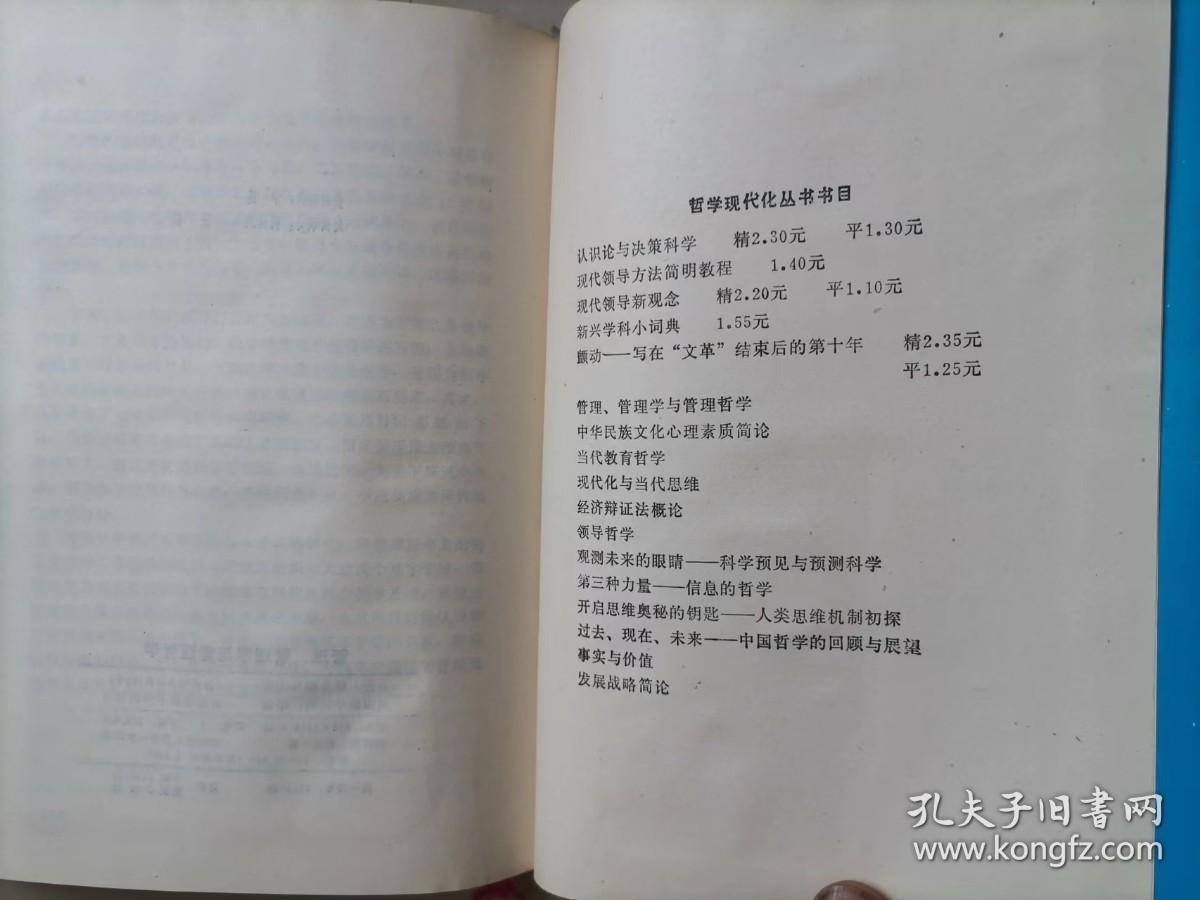 哲学现代化丛书书目
认识论与决策科学 精2.30元 平1.30元
现代领导方法简明教程 1.40元
现代领导新观念 精2.20元 平1.10元
新兴学科小词典 1.55元
颤动——写在“文革”结束后的第十年 精2.35元
平1.25元
管理、管理学与管理哲学
中华民族文化心理素质简论
当代教育哲学
现代化与当代思维
经济辩证法概论
领导哲学
观测未来的眼睛——科学预见与预测科学
第三种力量——信息的哲学
开启思维奥秘的钥匙——人类思维机制初探
过去、现在、未来——中国哲学的回顾与展望
事实与价值
发展战略简论
孔夫子旧书网
www.kongfz.com